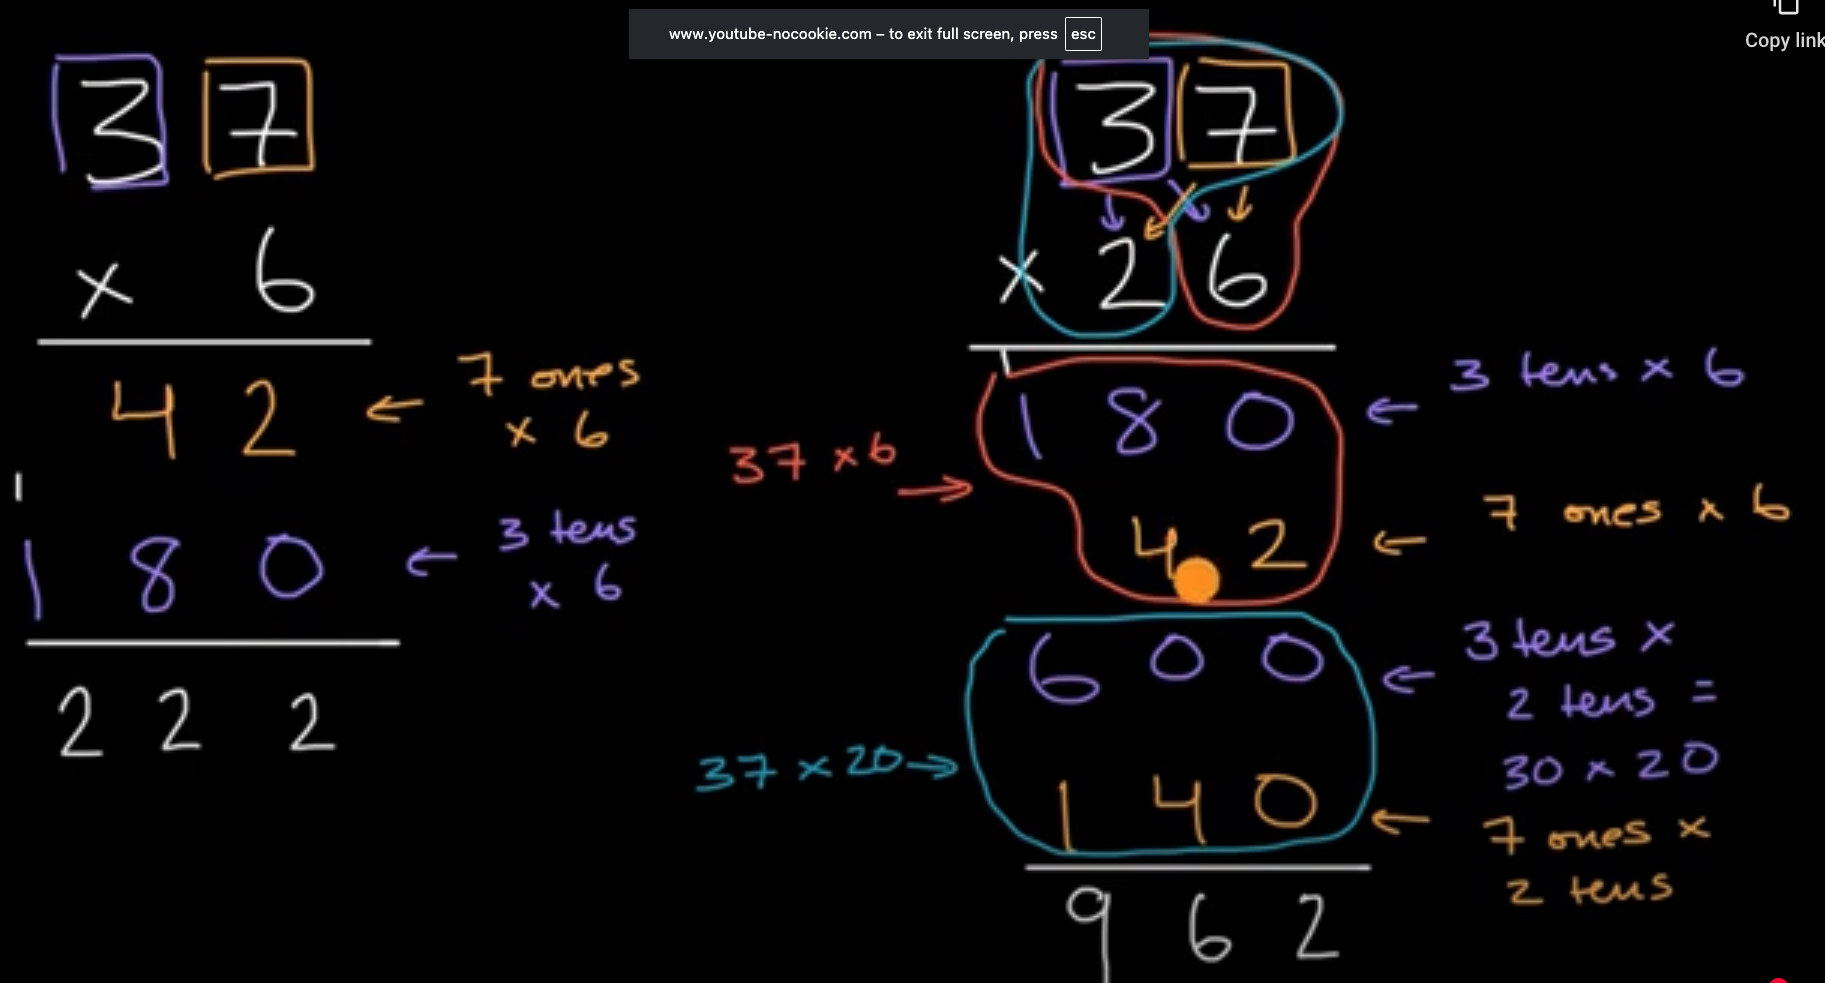 www.youtube-nocookie.com – to exit full screen, press esc
Copy link
3 7
x 6
4 2 ← 7 ones
x 6
1
1 8 0 ← 3 tens
x 6
2 2 2
3 7
x 2 6
1
1 8 0 ← 3 tens x 6
37 x 6 →
4 2 ← 7 ones x 6
6 0 0 ← 3 tens x
2 tens =
30 x 20
37 x 20 →
1 4 0 ← 7 ones x
2 tens
9 6 2